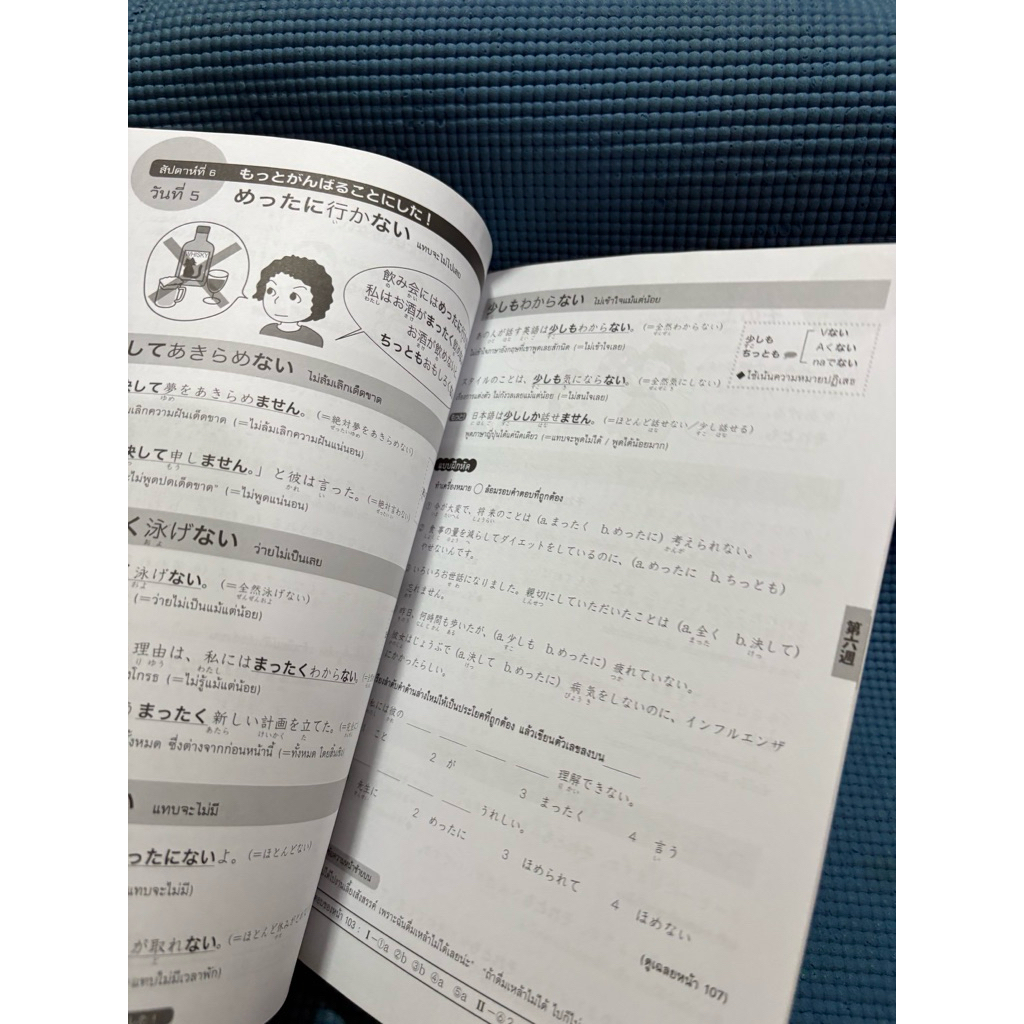 สัปดาห์ที่ 6
วันที่ 5
もっとがんばることにした!
めったに行かない แทบจะไม่ไปเลย
WHISKY
飲み会にはめったに
私はお酒がまったく飲め
お酒が飲めない
ちっともおもしろく
してあきらめない ไม่ล้มเลิกเด็ดขาด
して夢をあきらめません。(=絶対夢をあきらめない)
ล้มเลิกความฝันเด็ดขาด (=ไม่ล้มเลิกความฝันแน่นอน)
決して申しません。」と彼は言った。(=絶対言わない)
ไม่พูดปดเด็ดขาด" (=ไม่พูดแน่นอน)
く泳げない ว่ายไม่เป็นเลย
泳げない。(=全然泳げない)
(=ว่ายไม่เป็นแม้แต่น้อย)
理由は、私にはまったくわからない。
โกรธ (=ไม่รู้แม้แต่น้อย)
まったく新しい計画を立てた。
ทั้งหมด ซึ่งต่างจากก่อนหน้านี้ (=ทั้งหมด โดยสิ้นเชิง
い แทบจะไม่มี
ったにないよ。(=ほとんどない)
แทบจะไม่มี)
が取れない。(=ほとんど休みが
แทบไม่มีเวลาพัก)
少しもわからない ไม่เข้าใจแม้แต่น้อย
の人が話す英語は少しもわからない。(=全然わからない)
ภาษาอังกฤษที่เขาพูดเลยสักนิด (=ไม่เข้าใจเลย)
タイルのことは、少しも気にならない。(=全然気にしない)
ไม่กังวลเลยแม้แต่น้อย (=ไม่สนใจเลย)
日本語は少ししか話せません。(=ほとんど話せない/少し話せる)
พูดภาษาญี่ปุ่นได้แค่นิดเดียว (=แทบจะพูดไม่ได้ / พูดได้น้อยมาก)
少しも
ちっとも
Vない
Aくない
naでない
◆ใช้เน้นความหมายปฏิเสธ
แบบฝึกหัด
ทำเครื่องหมาย ○ ล้อมรอบคำตอบที่ถูกต้อง
が大変で、将来のことは (a. まったく b. めったに) 考えられない。
食事の量を減らしてダイエットをしているのに、(a. めったに b. ちっとも)
やせないんです。
いろいろお世話になりました。親切にしていただいたことは (a. 全く b. 決して)
忘れません。
昨日、何時間も歩いたが、(a. 少しも b. めったに) 疲れていない。
彼女はじょうぶで (a. 決して b. めったに) 病気をしないのに、インフルエンザ
にかかったらしい。
เรียงลำดับคำด้านล่างใหม่ให้เป็นประโยคที่ถูกต้อง แล้วเขียนตัวเลขลงบน
には彼の ____ ____ ____ ____ 理解できない。
こと 2 が 3 まったく 4 言う
先生に ____ ____ うれしい。
2 めったに 3 ほめられて 4 ほめない
(ดูเฉลยหน้า 107)
งานเลี้ยงสังสรรค์ เพราะฉันดื่มเหล้าไม่ได้เลยน่ะ" "ถ้าดื่มเหล้าไม่ได้ ไปก็ไม่
หน้า 103 : Ⅰ-①a ②b ③b ④a ⑤a Ⅱ-
第六週